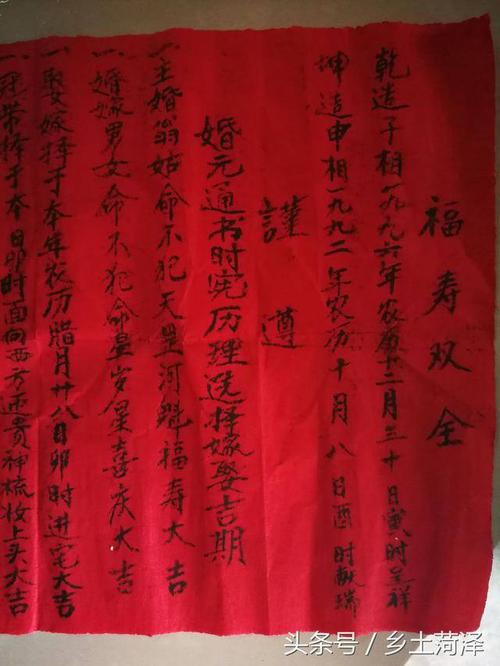 福寿双全
乾造子相一九九六年农历十二月三十日寅时呈祥
坤造申相一九九二年农历十月八日酉时献瑞
謹遵
婚元通书时宪历理选择嫁娶吉期
一主婚翁姑命不犯天罡河魁福寿大吉
一婚嫁男女命不犯命星岁星喜庆大吉
一娶嫁择于本年农历腊月廿八日卯时进宅大吉
一冠带择于本日卯时面向西方迎贵神梳妆上头大吉
头条号／乡土菏泽